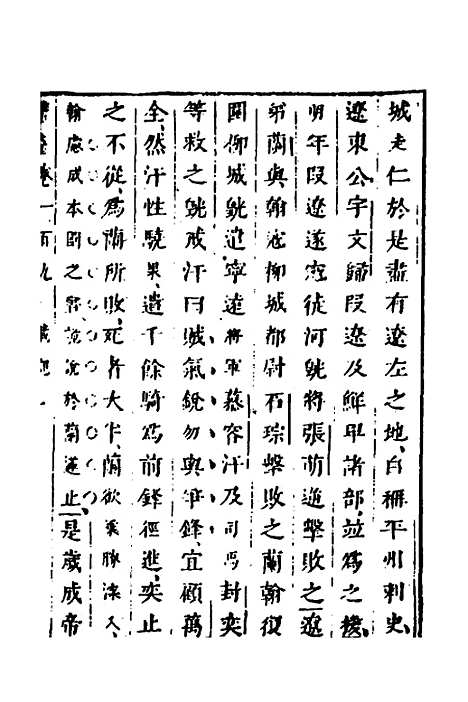 城走仁於是盡有遼左之地自稱平州刺史
遼東公宇文歸段遼及鮮卑諸部並為之援
明年段遼遂寇徒河皝將張萌逆擊敗之遼
弟蘭與翰寇柳城都尉石琮擊敗之蘭翰復
圍柳城皝遣寧遠將軍慕容汗及司馬封奕
等救之皝戒汗曰賊氣銳勿與爭鋒宜顧萬
全然汗性驍果遣千餘騎為前鋒徑進奕止
之不從為蘭所敗死者大半蘭欲乘勝深入
翰慮成本國之害詭說於蘭蘭遂止是歲成帝